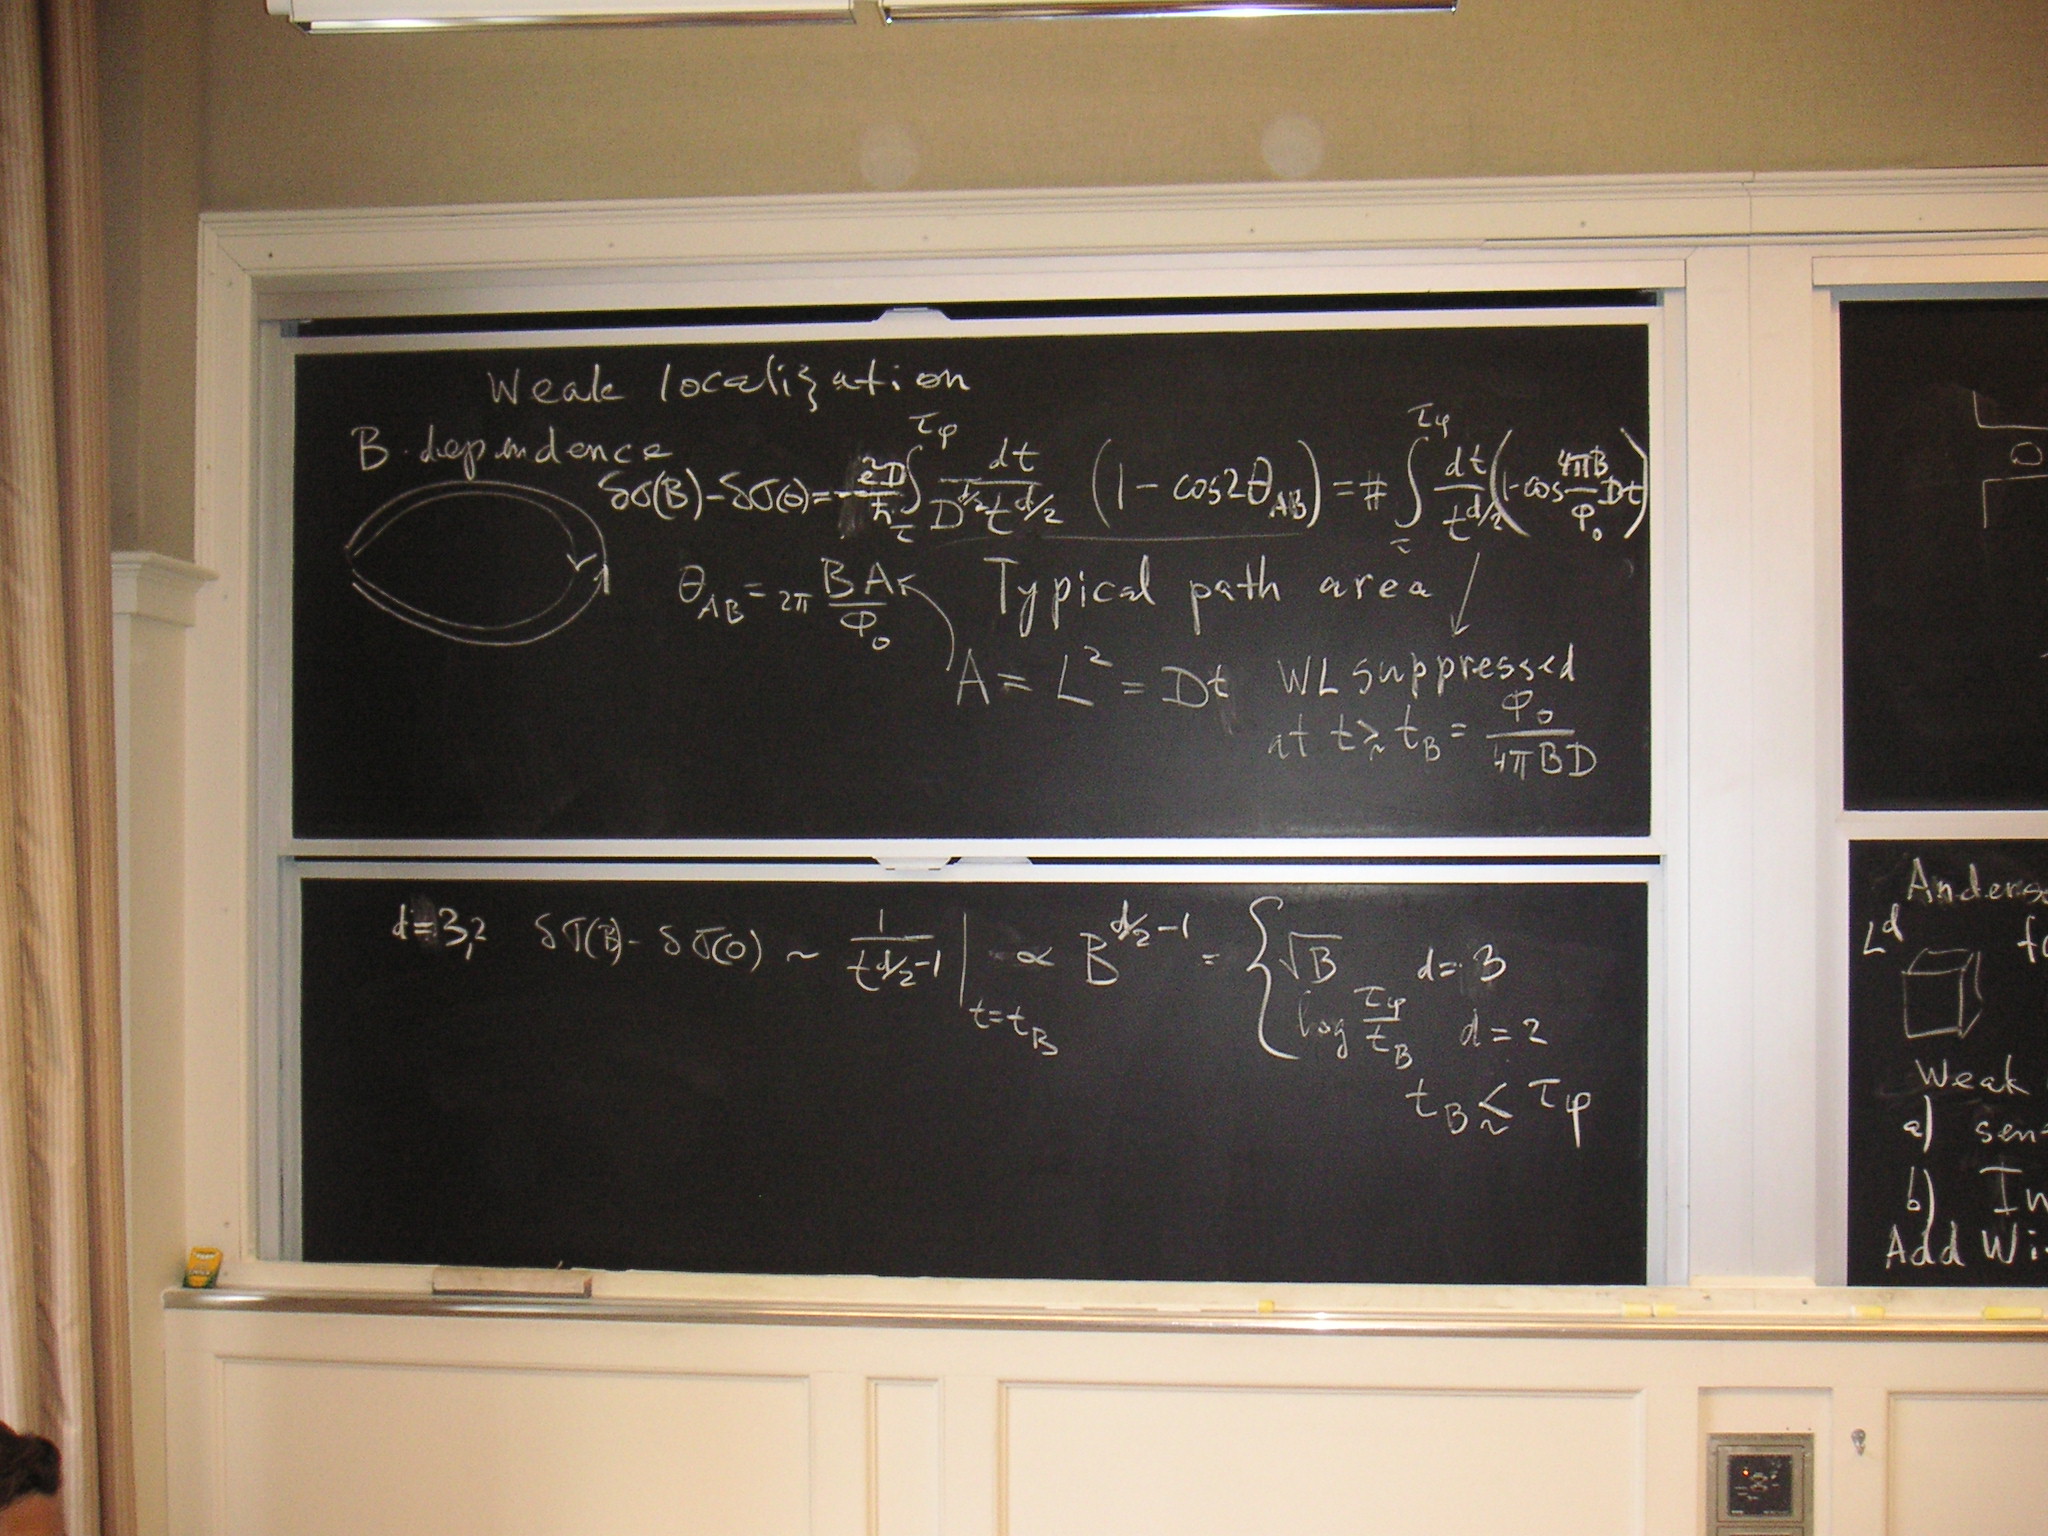 Weak localization
B-dependence
δσ(B)-δσ(0)=-e²D/ħ ∫_τ^τφ dt/(D^{d/2}t^{d/2}) (1-cos2θ_AB)=# ∫_τ^τφ dt/t^{d/2}(1-cos 4πB/Φ₀ Dt)
θ_AB = 2π BA/Φ₀
Typical path area
A = L² = Dt
WL suppressed
at t ≳ t_B = Φ₀/4πBD
d=3,2 δσ(B)-δσ(0) ~ 1/t^{d/2-1} |_{t=t_B} ∝ B^{d/2-1} = { √B d=3
log τφ/t_B d=2
t_B ≲ τφ
L^d
Weak
a)
b)
Add